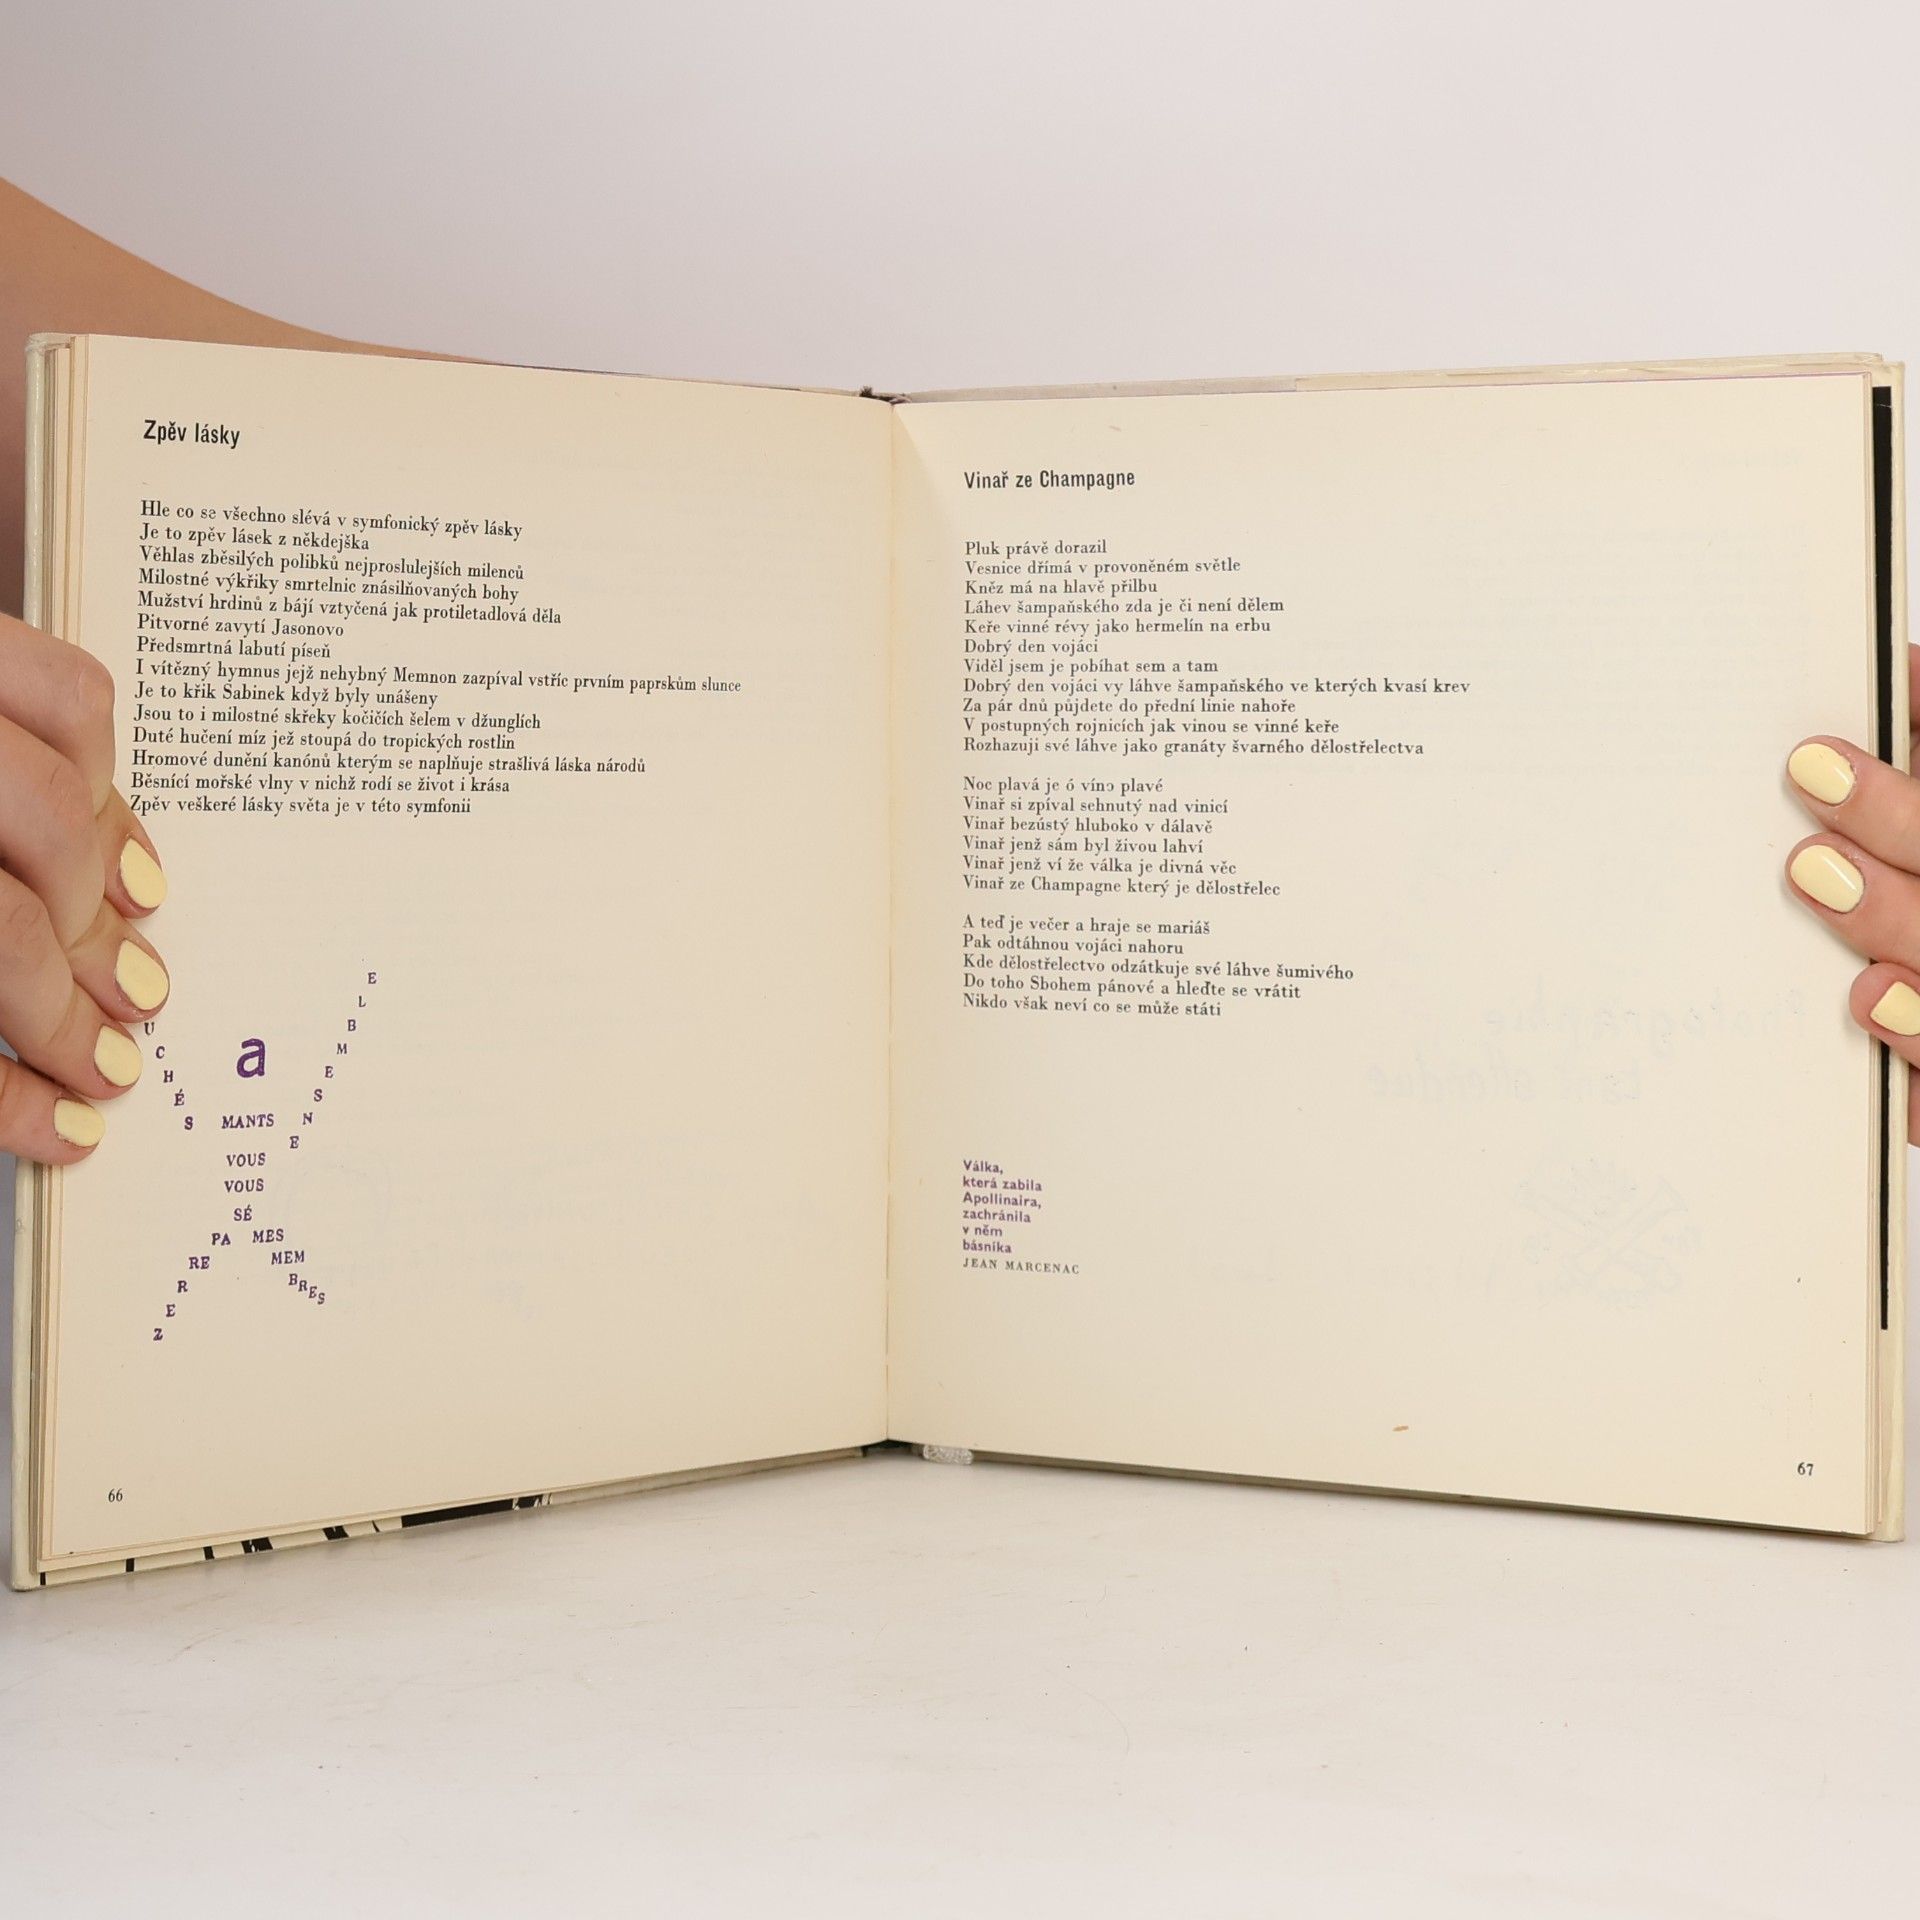 Zpěv lásky
Hle co se všechno slévá v symfonický zpěv lásky
Je to zpěv lásek z někdejška
Věhlas zběsilých polibků nejproslulejších milenců
Milostné výkřiky smrtelnic znásilňovaných bohy
Mužství hrdinů z bájí vztyčená jak protiletadlová děla
Pitvorné zavytí Jasonovo
Předsmrtná labutí píseň
I vítězný hymnus jejž nehybný Memnon zazpíval vstříc prvním paprskům slunce
Je to křik Sabinek když byly unášeny
Jsou to i milostné skřeky kočičích šelem v džunglích
Duté hučení míz jež stoupá do tropických rostlin
Hromové dunění kanónů kterým se naplňuje strašlivá láska národů
Běsnící mořské vlny v nichž rodí se život i krása
Zpěv veškeré lásky světa je v této symfonii
UCHÉS
ENSEMBLE
a
MANTS
VOUS
VOUS
SÉ
PA
RE
R
E
Z
MES
MEM
BRES
66
Vinař ze Champagne
Pluk právě dorazil
Vesnice dřímá v provoněném světle
Kněz má na hlavě přilbu
Láhev šampaňského zda je či není dělem
Keře vinné révy jako hermelín na erbu
Dobrý den vojáci
Viděl jsem je pobíhat sem a tam
Dobrý den vojáci vy láhve šampaňského ve kterých kvasí krev
Za pár dnů půjdete do přední linie nahoře
V postupných rojnicích jak vinou se vinné keře
Rozhazuji své láhve jako granáty švarného dělostřelectva
Noc plavá je ó víno plavé
Vinař si zpíval sehnutý nad vinicí
Vinař bezústý hluboko v dálavě
Vinař jenž sám byl živou lahví
Vinař jenž ví že válka je divná věc
Vinař ze Champagne který je dělostřelec
A teď je večer a hraje se mariáš
Pak odtáhnou vojáci nahoru
Kde dělostřelectvo odzátkuje své láhve šumivého
Do toho Sbohem pánové a hleďte se vrátit
Nikdo však neví co se může státi
Válka,
která zabila
Apollinaira,
zachránila
v něm
básníka
JEAN MARCENAC
67